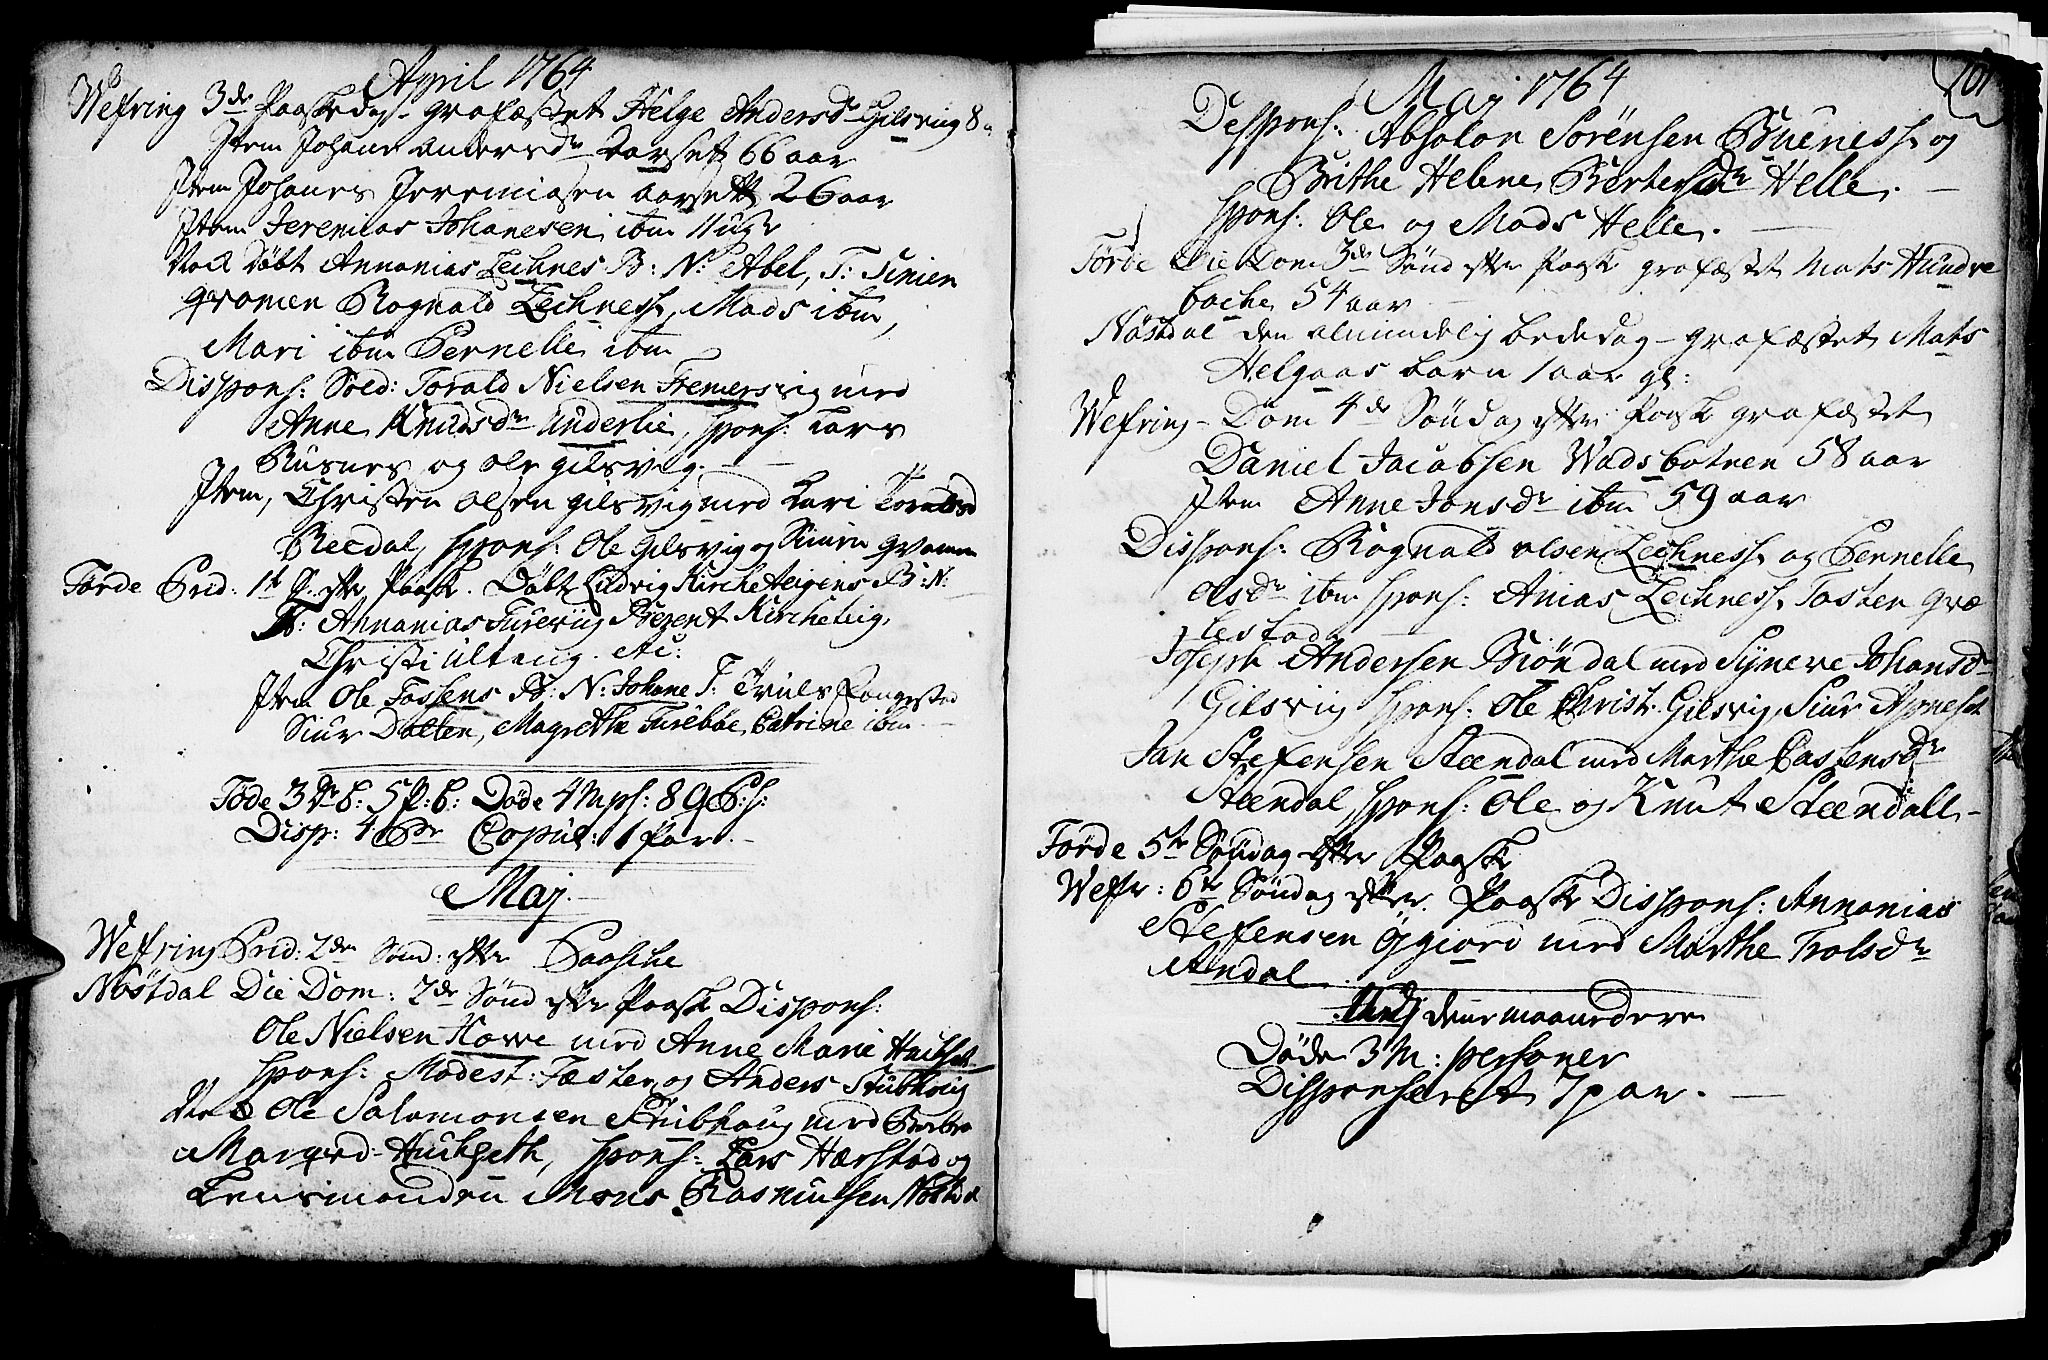 April 1764
Wefring 3de Paaskedag grafæstet Helge Andersdr Gilsvig 8
Item Johane Andersdr Aarset 66 aar
Item Johanes Jeremiasen Aarseth 26 aar
Item Jeremias Johanesen ibm 11 uger
Nock døbt Annanias Lechnes B: N: Abel, T: Simen
qvamen Rognald Lechness, Mads ibm,
Mari ibm Pernelle ibm
Dispons: Sold: Torald Nielsen Fremersvig med
Anne Knudsdr Underlie, spons: Lars
Rusnes og Ole Gilsvig.
Item, Christen Olsen Gilsvig med Kari
Reedal, spons: Ole Gilsvig og Simen qvamen
Førde Prid: 1te S. efter Paask. Døbt Ludvig Kircheteigens B: N:
T: Annanias Furevig Bezent Kircheteig,
Christi Ultang. etc:
Item Ole Fossens B: N: Johane T: Truls
Siur Dallen, Magrethe Furebbe, Catrine ibm
Føde 3 Dr: b: 5 P: b: Døde 4 Mps: 8 q
Disp: 4 Par Copul: 1 Par.
Maj.
Wefring Prid: 2den Sønd: efter Paasche
Nøstdal Die Dom: 2de Sønd efter Paask Dispons:
Ole Nielsen Howe med Anne Marie
spons: Modest: Fæsten og Anders Stubhoug
Nock Ole Salomonsen Stubhoug med
Margrd: Huchseth, spons: Lars Hærstad og
Lensmanden Mons Rasmusen Nøstdal
101
Maj 1764
Despons: Absolon Sørensen Bueness og
Brithe Helene Bertersdr Helle.
spons: Ole og Mads Helle.
Førde Die Dom 3de Sønd efter Paask grafæstet Mats Hundve
bache 54 aar
Nøstdal den almindelig bededag grafæstet Mats
Helgaas barn 1 aar gl:
Wefring Dom 4de Søndag efter Paask grafæstet
Daniel Jacobsen Wadsbotnen 58 aar
Item Anne Jonsdr ibm 59 aar
Dispons: Rognald Olsen Lechness og Pernelle
Olsdr ibm spons: Anias Lechness, Tosten qvæ
lestad
Joseph Andersen Brøndal med Synneve Johansdr
Gilsviig spons: Ole Christ: Gilsvig, Siur Apneset
Jan Stefensen Steendal med Marthe Tostensdr
Steendal, spons: Ole og Knut Steendall
Førde 5te Søndag efter Paask
Wefr: 6te Søndag efter Paask Dispons: Annanias
Stefensen øygiord med Marthe Trolsdr
Andal
denne maanedere
Døde 3 M: personer
Disponseret 7 par.